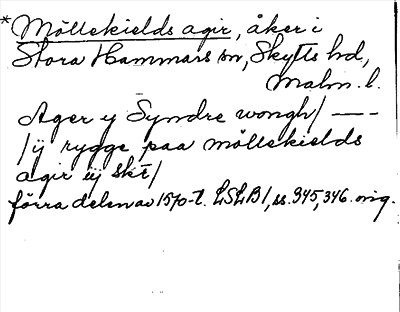 *Möllekields agir, åker i
Stora Hammars sn, Skytts hd,
Malm. l.
Ager y Syndre wongh/ ---
/ij rygge paa möllekields
agir iij skt/
förra delen av 1570-t. LSLB1, ss. 345, 346. orig.